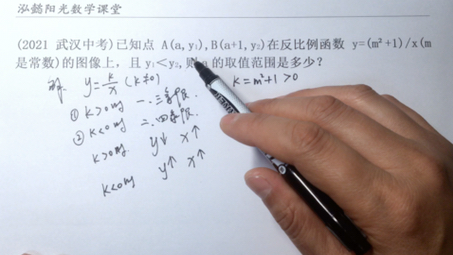 泓懿阳光数学课堂
(2021 武汉中考)已知点 A(a,y₁),B(a+1,y₂)在反比例函数 y=(m²+1)/x(m
是常数)的图像上，且 y₁<y₂,则 a 的取值范围是多少?
解 y=k/x (k≠0) k=m²+1>0
①k>0时 一.三象限.
②k<0时 二.四象限.
k>0时. y↓ x↑
k<0时 y↑ x↑